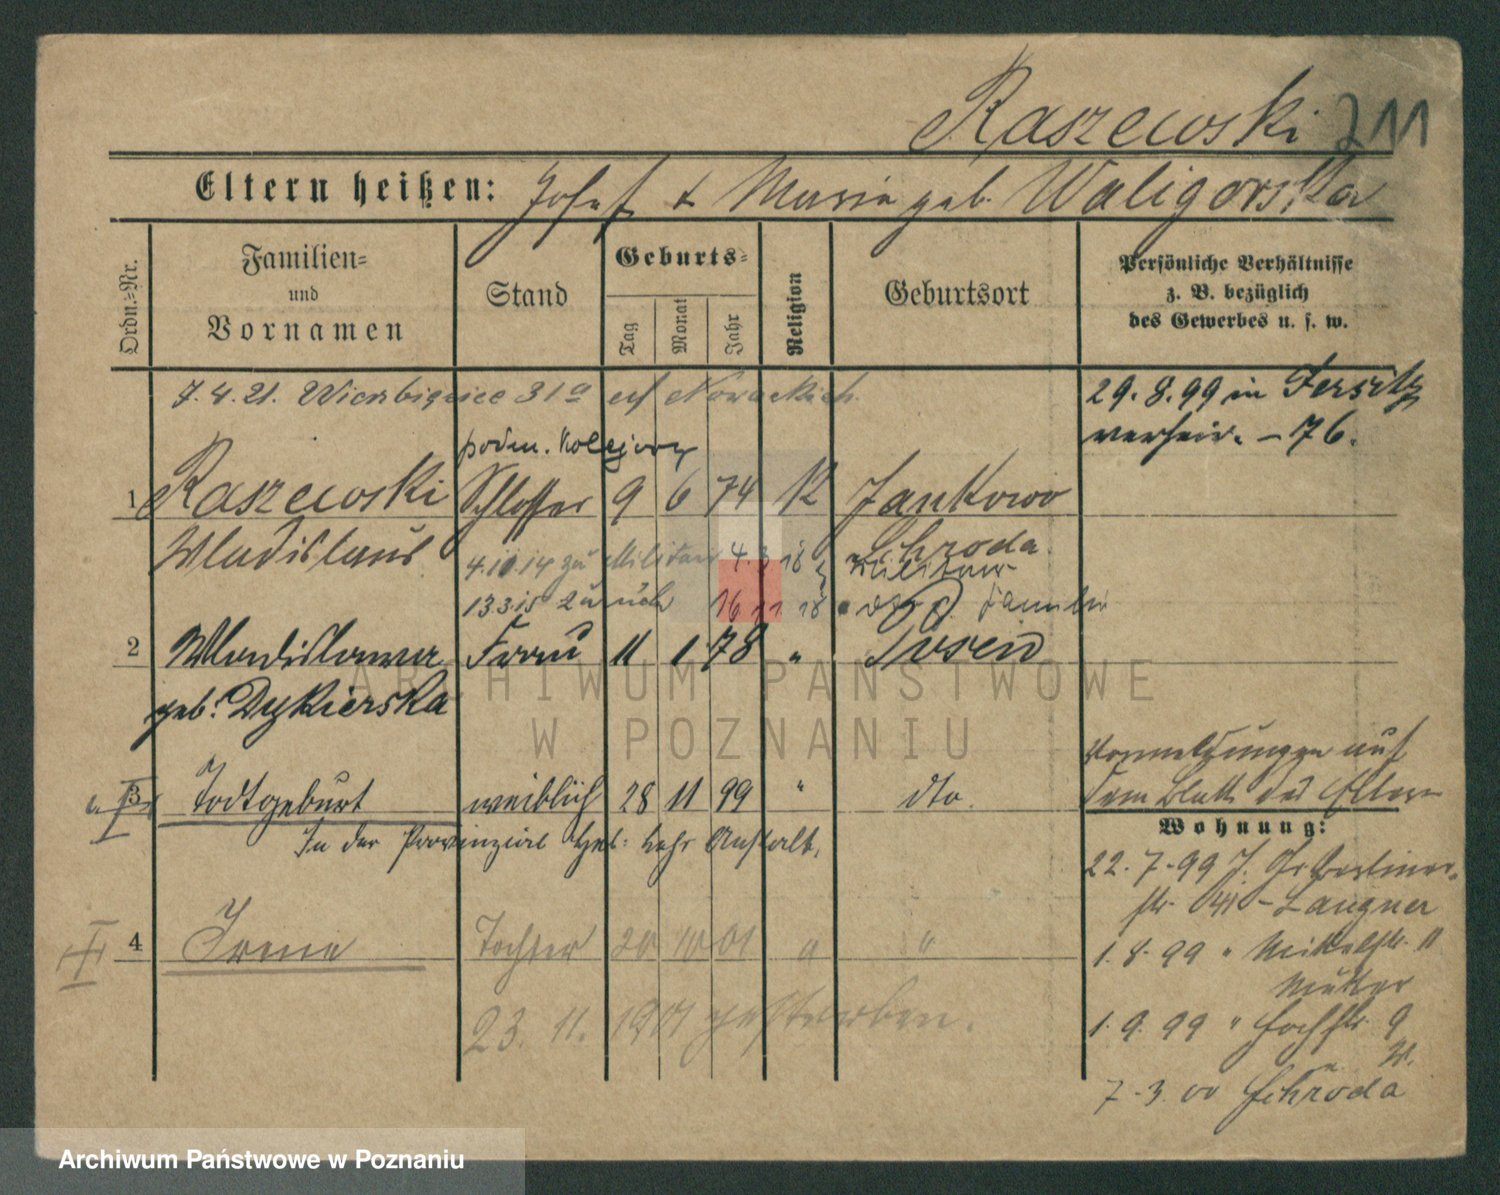 Raszewski 211
Eltern heißen: Josef & Maria geb. Waligorska
Ordn.=Nr.
Familien=
und
Vornamen
Stand
Geburts=
Tag
Monat
Jahr
Religion
Geburtsort
Persönliche Verhältnisse
z. B. bezüglich
des Gewerbes u. s. w.
7.4.21. 31a Nowackich
29.8.99 in Jersitz
verheir. – 76.
1 Raszewski Schlosser 9 6 74 K Jankowo
Wladislaus Schroda
4.10.14 zu Militär 4.3.18 Militär
13.3.15 zurück 16 11 18 Familie
2 Wladislawa Frau 11 1 78 " Posen
geb. Dykierska
3 Todtgeburt weiblich 28 11 99 " dto.
In der Provinzial Heb. Lehr Anstalt.
Vormeldungen auf
dem Blatt des Eltern
Wohnung:
22.7.99 J. Gr Berliner-
str. – Langner
4 Irene Tochter 20 10 01 " "
1.8.99 " 11
Mutter
23. 11. 1901 gestorben.
1.9.99 " Hochstr. 9
7.3.00 Schroda
ARCHIWUM PAŃSTWOWE
W POZNANIU
Archiwum Państwowe w Poznaniu